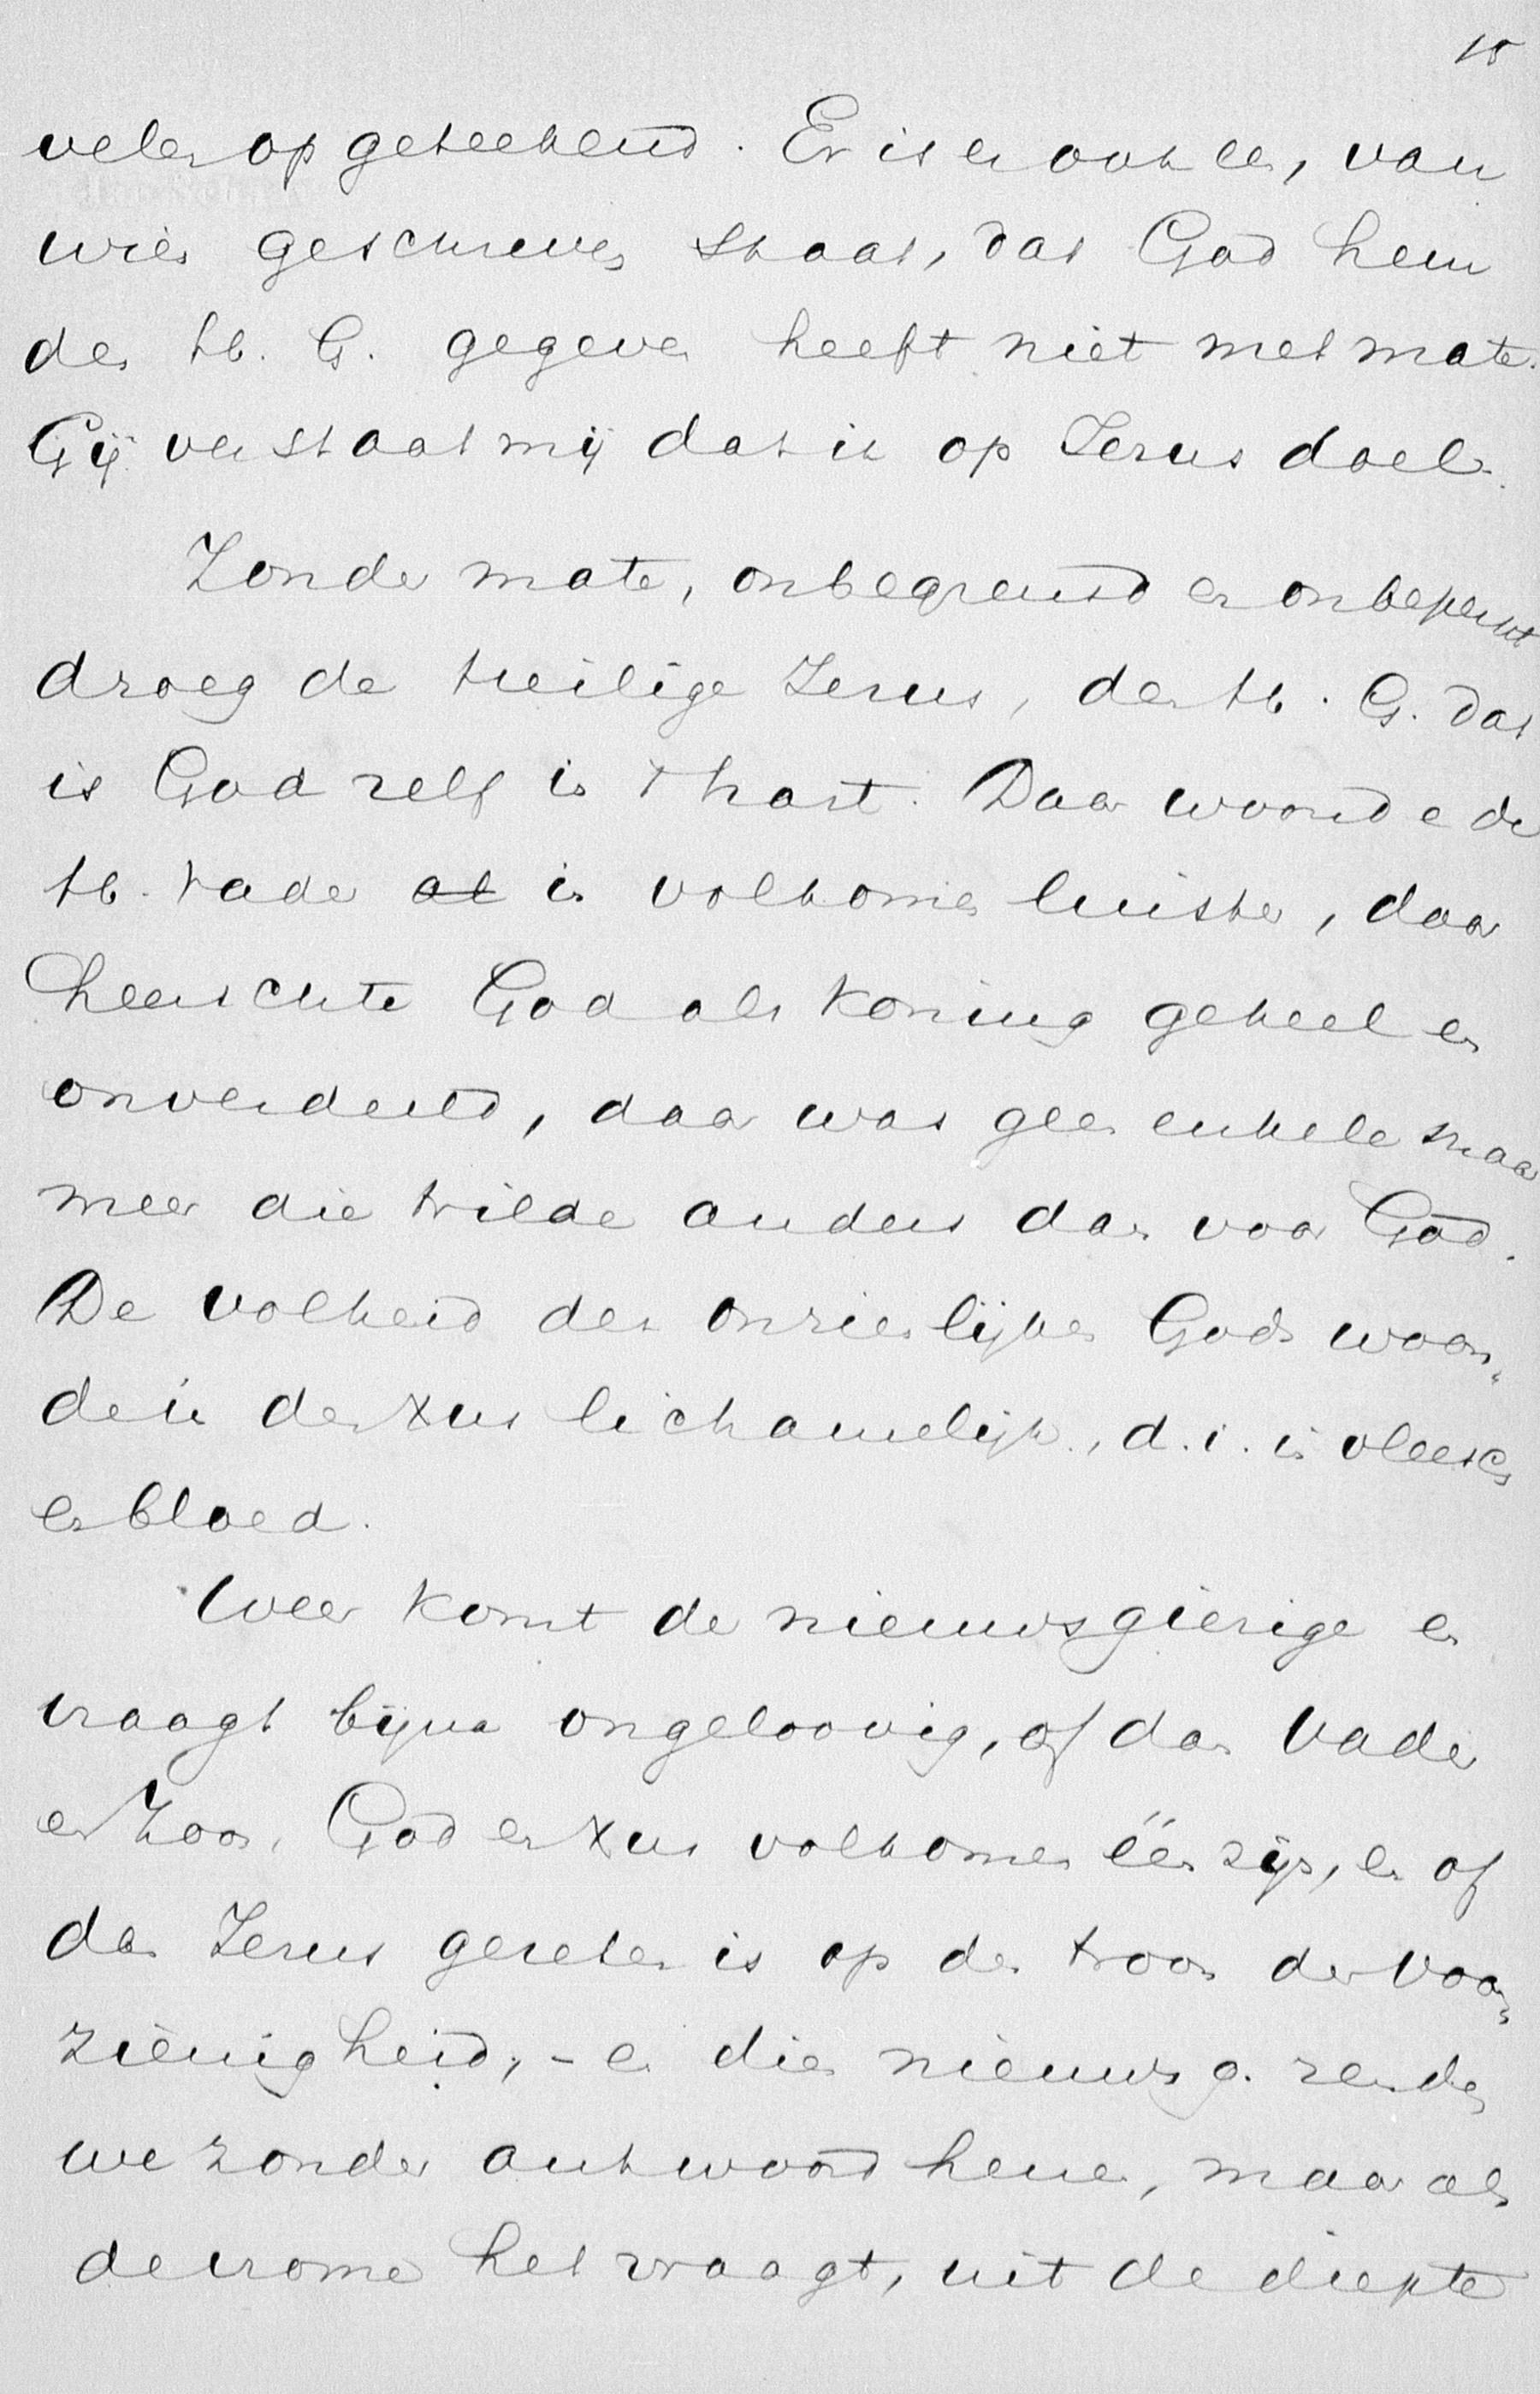 15
velen opgeteekend. Er is er ook een, van
wien geschreven staat, dat God hem
den H. G. gegeven heeft niet met mate.
Gij verstaat mij dat ik op Jezus doel.
Zonder mate, onbegrensd en onbeperkt
droeg de heilige Jezus, den H. G. dat
is God zelf in 't hart. Daar woonde de
H. Vader al in volkomen luister, daar
heerschte God als Koning geheel en
onverdeeld, daar was geen enkele snaar
meer die trilde anders dan voor God.
De volheid des onzienlijken Gods woon-
de in den Xus lichamelijk, d. i. in vleesch
en bloed.
Weer komt de nieuwsgierige en
vraagt bijna ongeloovig, of dan Vader
en Zoon, God en Xus volkomen één zijn, en of
dan Jezus gezeten is op den troon der voor-
zienigheid, - en dien nieuwsg. zenden
we zonder antwoord henen, maar als
de vrome het vraagt, uit de diepte